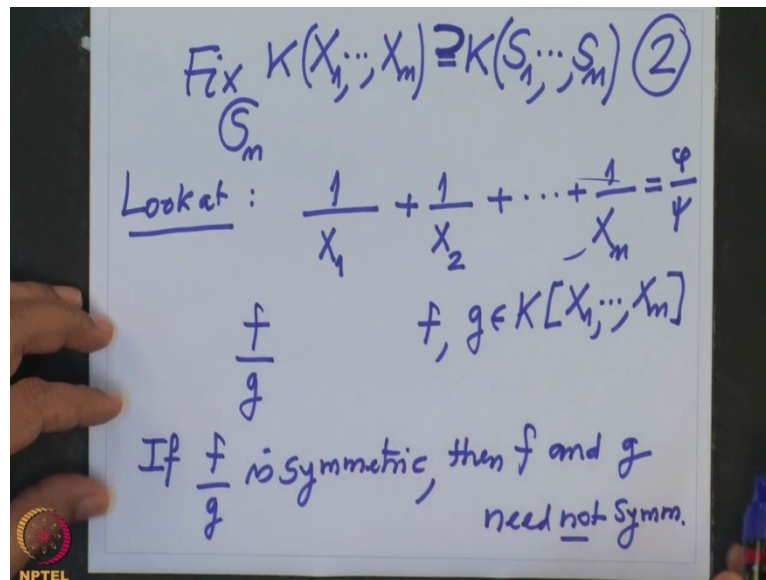 Fix K(X₁,...,Xₙ) ⊇ K(S₁,...,Sₙ) ②
𝔖ₙ
Look at : 1/X₁ + 1/X₂ + ··· + 1/Xₙ = φ/ψ
f/g f, g ∈ K[X₁,...,Xₙ]
If f/g is symmetric, then f and g
need not symm.
NPTEL